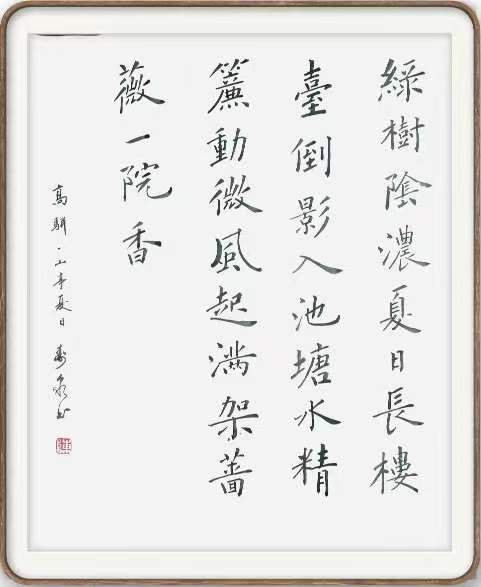 綠樹陰濃夏日長樓
臺倒影入池塘水精
簾動微風起滿架薔
薇一院香
高駢·山亭夏日 壽泉书